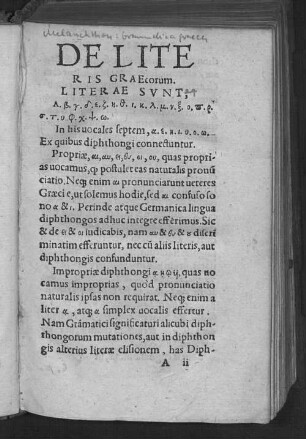 Melanchthon: Grammatica graeca
DE LITE
RIS GRAEcorum.
LITERAE SVNT,
Α. β. γ. δ. ε. ζ. η. θ. ι. κ. λ. μ. ν. ξ. ο. π. ρ.
σ. τ. υ. φ. χ. ψ. ω.
In his uocales septem, α. ε. η. ι. υ. ο. ω.
Ex quibus diphthongi connectuntur.
Propriæ, αι, αυ, ει, ευ, οι, ου, quas propri
as uocamus, ꝙ postulet eas naturalis pronũ
ciatio. Neqꝫ enim αι pronunciarunt ueteres
Græci ε, ut solemus hodie, sed αι confuso so
no α & ι. Perinde atque Germanica lingua
diphthongos adhuc integre efferimus. Sic
& de ει & οι iudicabis, nam αυ & ευ & υ discri
minatim efferuntur, nec cũ alijs literis, aut
diphthongis confunduntur.
Impropriæ diphthongi ᾳ ῃ ῳ, quas no
camus improprias, quòd pronunciatio
naturalis ipsas non requirat. Neqꝫ enim a
liter ᾳ, atqꝫ α simplex uocalis effertur.
Nam Grãmatici significaturi alicubi diph-
thongorum mutationes, aut in diphthon
gis alterius literæ elisionem, has Diph-
A ii